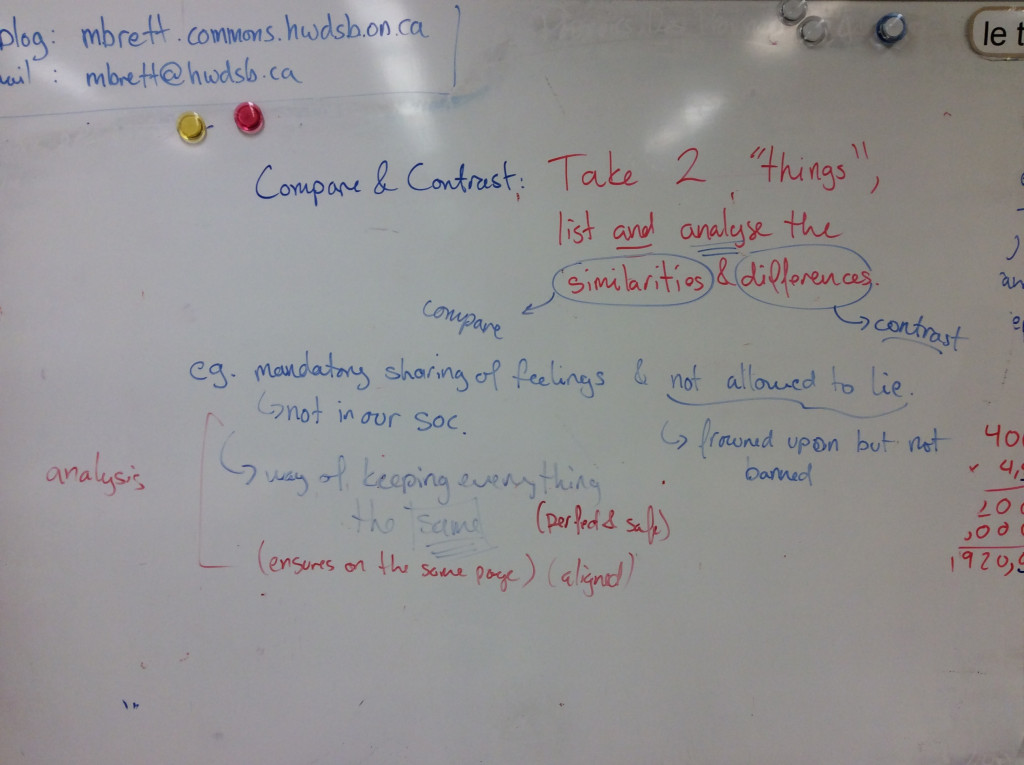 blog: mbrett.commons.hwdsb.on.ca
mail : mbrett@hwdsb.ca
le t
Compare & Contrast: Take 2 "things",
list and analyse the
similarities & differences.
compare
contrast
eg. mandatory sharing of feelings & not allowed to lie.
not in our soc.
frowned upon but not
banned
analysis
way of keeping everything
the same (perfect & safe)
(ensures on the same page) (aligned)
400
x 4,
200
,000
1920,